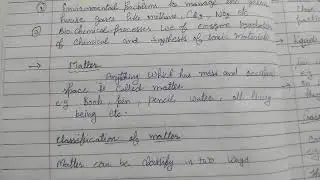 ① Environmental problem to manage the green
house gases like methane, CH4, NO2 etc.
② Bio chemical processes use of enzymes
of chemical and synthesis of materials
→ Matter
Anything which has mass and occupies
space is called matter
e.g Book, pen, pencil, water, all living
being etc.
Classification of matter
Matter can be classify in two ways